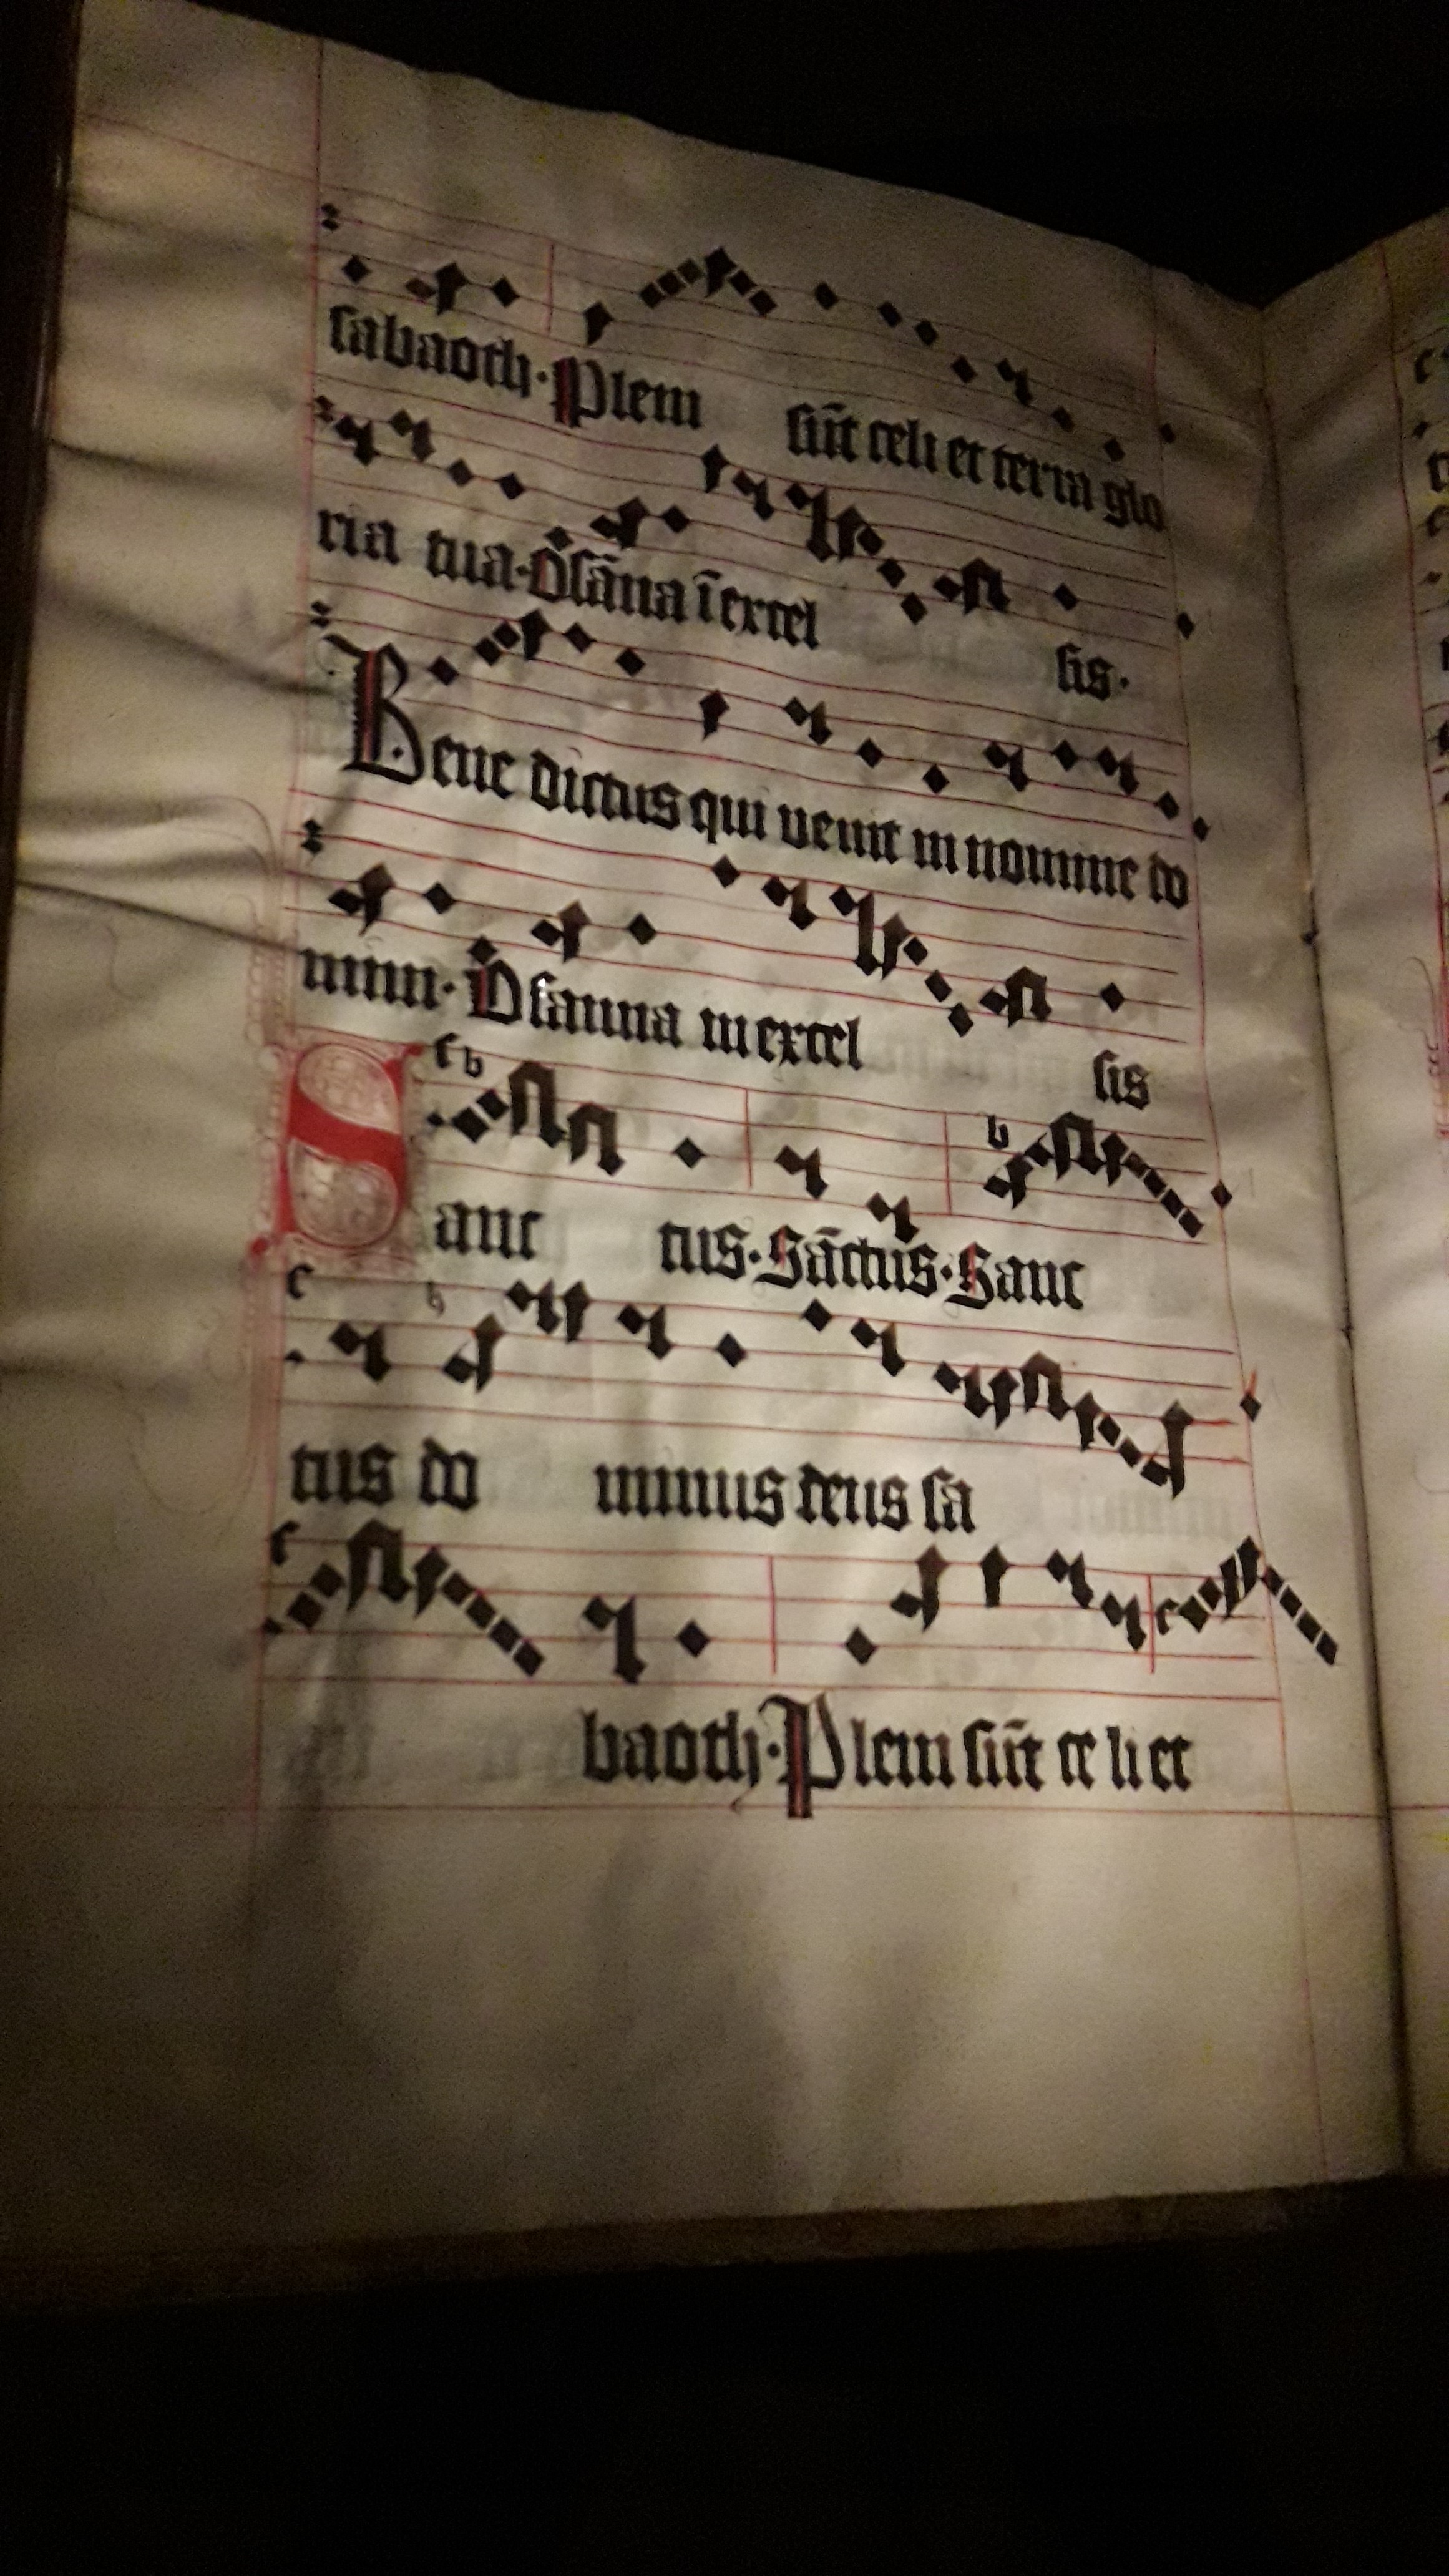 sabaoth· Pleni sūt celi et terra glo
ria tua· Osāna ī excel sis·
Bene dictus qui venit in nomine do
mini· Osanna in excel sis
Sanc tus· Sāctus· Sanc
tus do minus deus sa
baoth· Pleni sūt ce li et